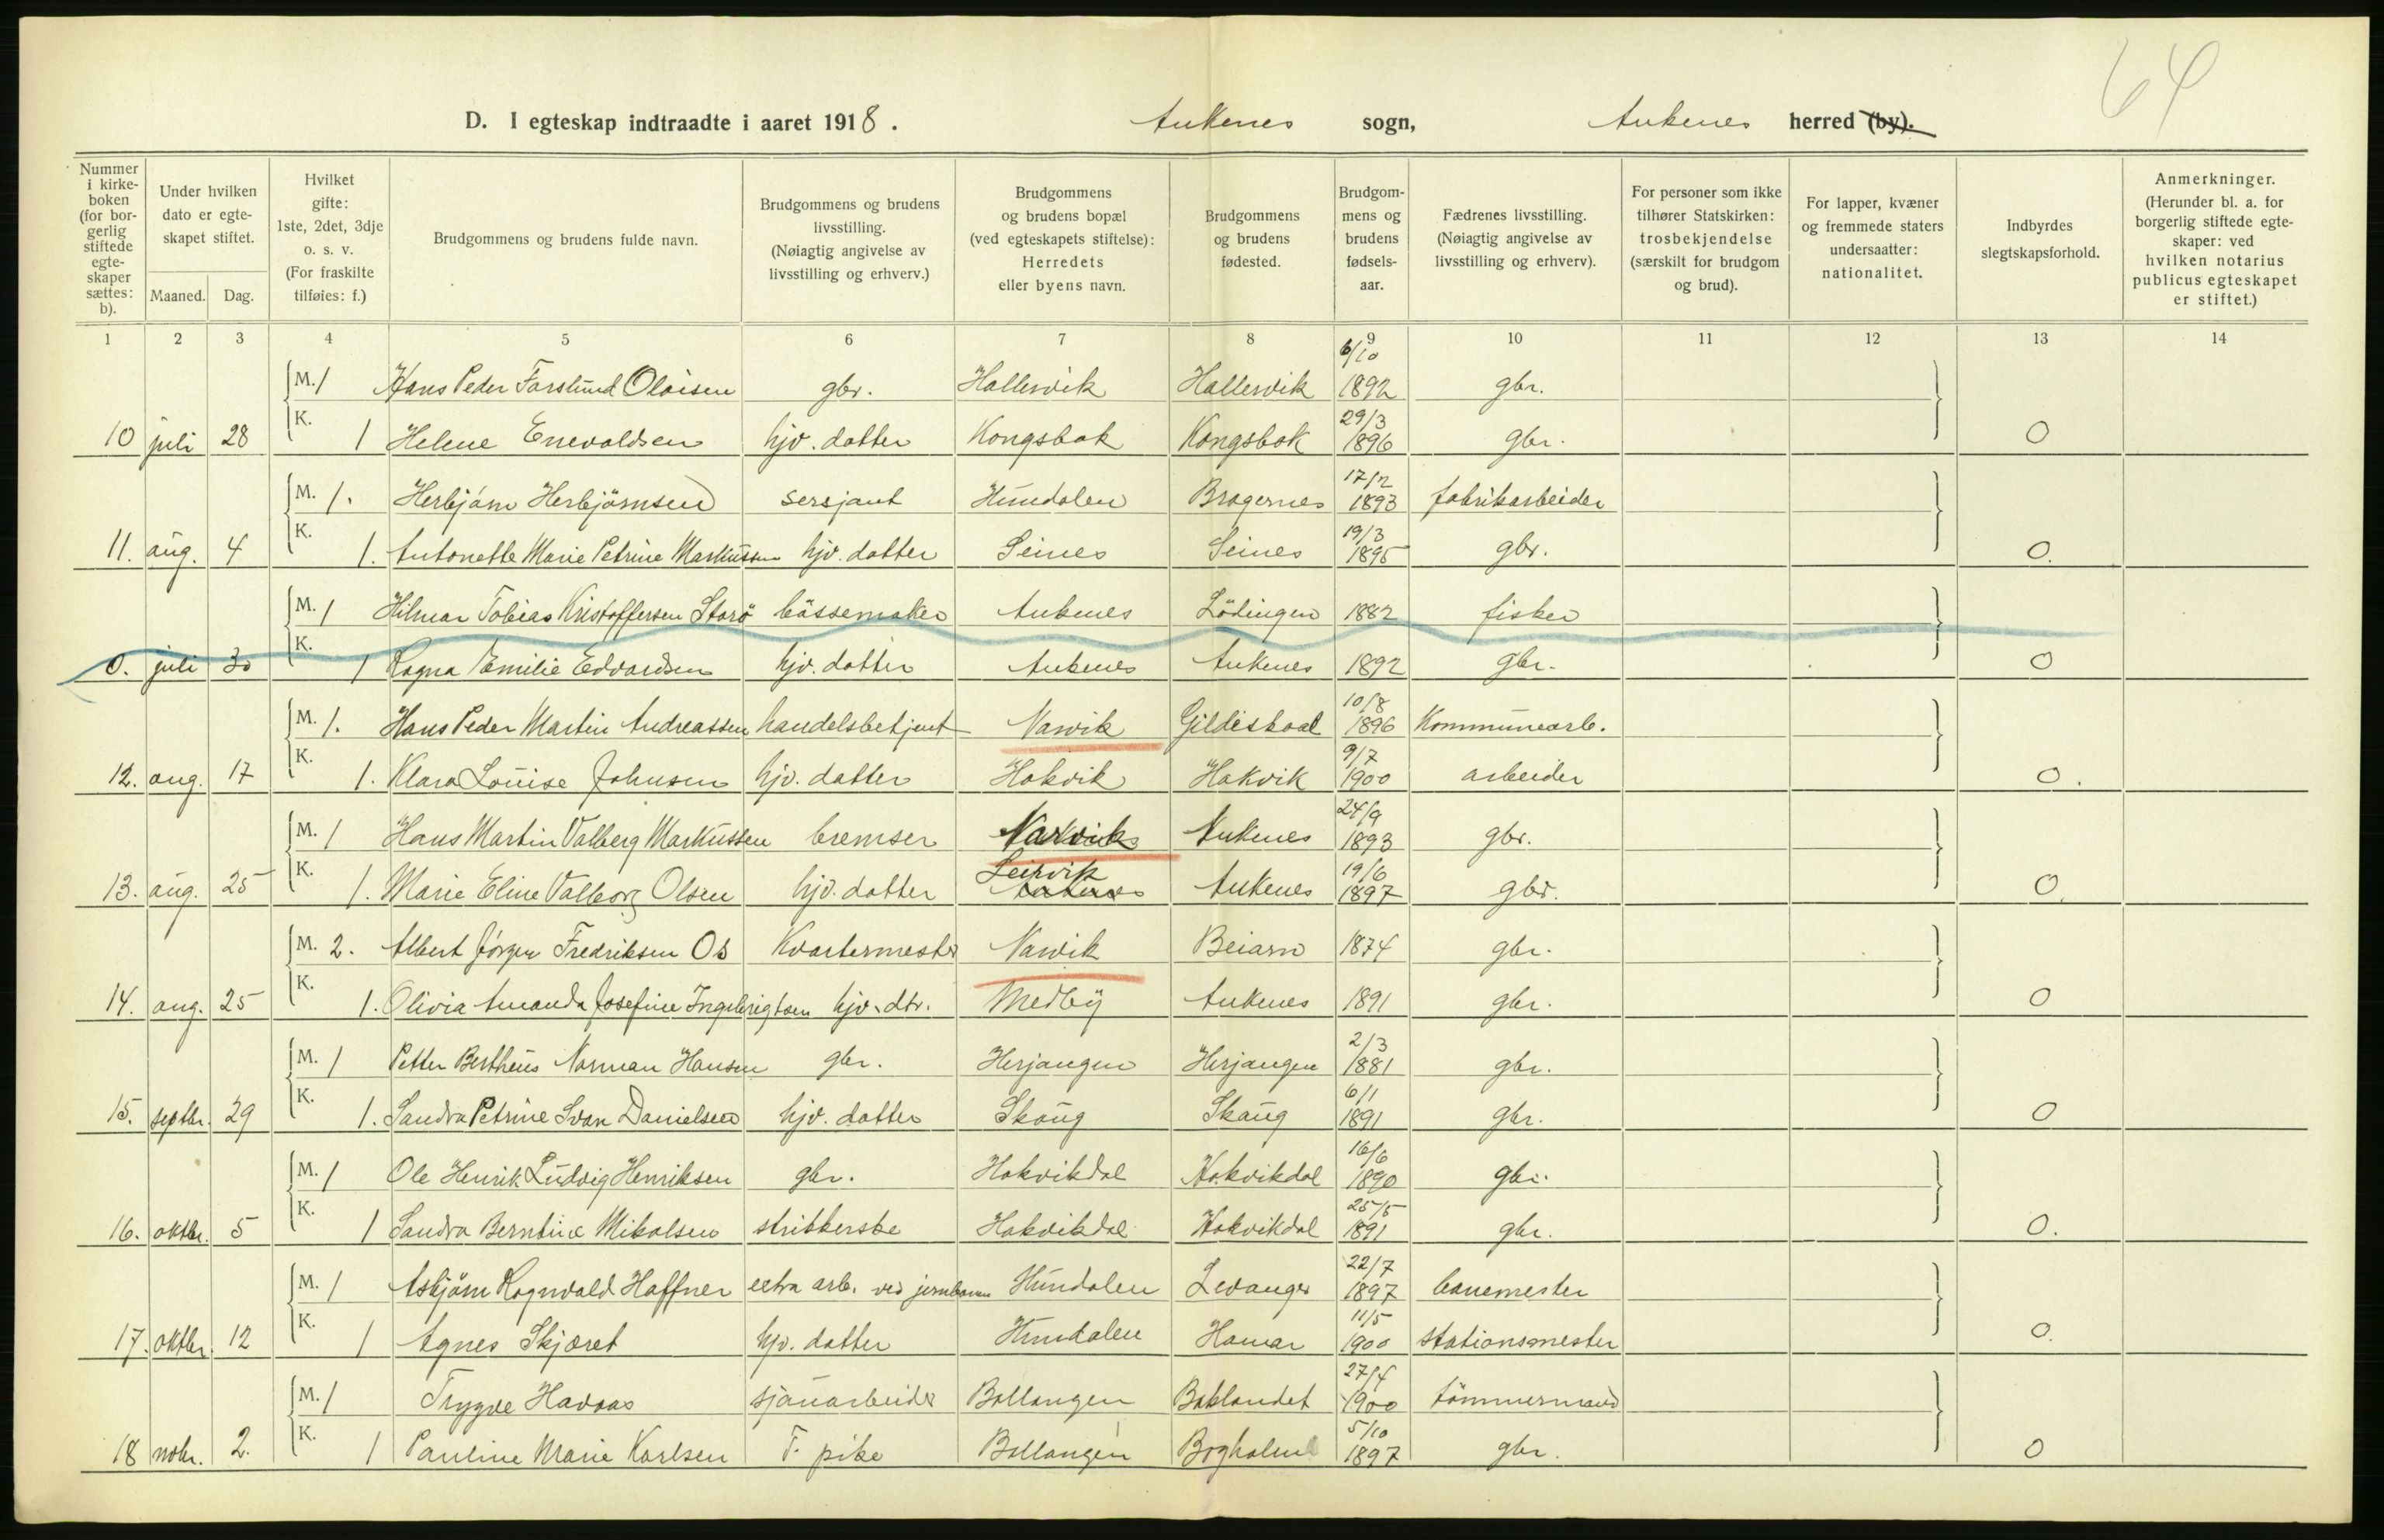 64
D. I egteskap indtraadte i aaret 1918. Ankenes sogn, Ankenes herred (by).
Nummer i kirkeboken (for borgerlig stiftede egteskaper sættes: b).
Under hvilken dato er egteskapet stiftet.
Maaned. Dag.
Hvilket gifte: 1ste, 2det, 3dje o. s. v. (For fraskilte tilføies: f.)
Brudgommens og brudens fulde navn.
Brudgommens og brudens livsstilling. (Nøiagtig angivelse av livsstilling og erhverv.)
Brudgommens og brudens bopæl (ved egteskapets stiftelse): Herredets eller byens navn.
Brudgommens og brudens fødested.
Brudgommens og brudens fødselsaar.
Fædrenes livsstilling. (Nøiagtig angivelse av livsstilling og erhverv).
For personer som ikke tilhører Statskirken: trosbekjendelse (særskilt for brudgom og brud).
For lapper, kvæner og fremmede staters undersaatter: nationalitet.
Indbyrdes slegtskapsforhold.
Anmerkninger. (Herunder bl. a. for borgerlig stiftede egteskaper: ved hvilken notarius publicus egteskapet er stiftet.)
1 2 3 4 5 6 7 8 9 10 11 12 13 14
M. 1 Hans Peder Forslund Oloisen gbr. Hallervik Hallervik 6/10 1892 gbr.
10 juli 28 K. 1 Helene Enevoldsen hjv. datter Kongsbak Kongsbak 29/3 1896 gbr. 0
M. 1. Herbjørn Herbjørnsen sersjant Hundalen Bragernes 17/2 1893 fabrikarbeider
11. aug. 4 K. 1. Antonette Marie Petrine Markussen hjv. datter Seines Seines 19/3 1895 gbr. 0.
M. 1 Hilmar Tobias Kristoffersen Storø bøssemaker Ankenes Lødingen 1882 fisker
0. juli 30 K. 1 Ragna Emilie Edvardsen hjv. datter Ankenes Ankenes 1892 gbr. 0
M. 1. Hans Peder Martin Andreassen handelsbetjent Narvik Gildeskaal 10/8 1896 Kommunearb.
12. aug. 17 K. 1. Klara Louise Johnsen hjv. datter Hakvik Hakvik 9/7 1900 arbeider 0.
M. 1 Hans Martin Valberg Markussen bremser Narvik Ankenes 24/9 1893 gbr.
13. aug. 25 K. 1. Marie Eline Valborg Olsen hjv. datter Leirvik Ankenes Ankenes 19/6 1897 gbr. 0.
M. 2. Albert Jørgen Fredriksen Os Kvartermester Narvik Beiarn 1874 gbr.
14. aug. 25 K. 1. Olivia Amanda Josefine Ingebrigtsen hjv. dtr. Medby Ankenes 1891 gbr. 0
M. 1 Petter Bertheus Norman Hansen gbr. Herjangen Herjangen 2/3 1881 gbr.
15. septbr. 29 K. 1. Sandra Petrine Svan Danielsen hjv. datter Skaug Skaug 6/1 1891 gbr. 0
M. 1 Ole Henrik Ludvig Henriksen gbr. Hakvikdal Hakvikdal 16/6 1890 gbr.
16. oktbr. 5 K. 1 Sandra Berntine Mikalsen strikkerske Hakvikdal Hakvikdal 25/5 1891 gbr. 0.
M. 1 Asbjørn Ragnvald Haffner extra arb. ved jernbanen Hundalen Levanger 22/7 1897 banemester
17. oktbr. 12 K. 1 Agnes Skjæret hjv. datter Hundalen Hamar 11/5 1900 stationsmester 0.
M. 1 Trygve Havaas sjauarbeider Ballangen Baklandet 27/4 1900 tømmermand
18 nobr. 2. K. 1 Pauline Marie Karlsen T. pike Ballangen Bogholm 5/10 1897 gbr. 0